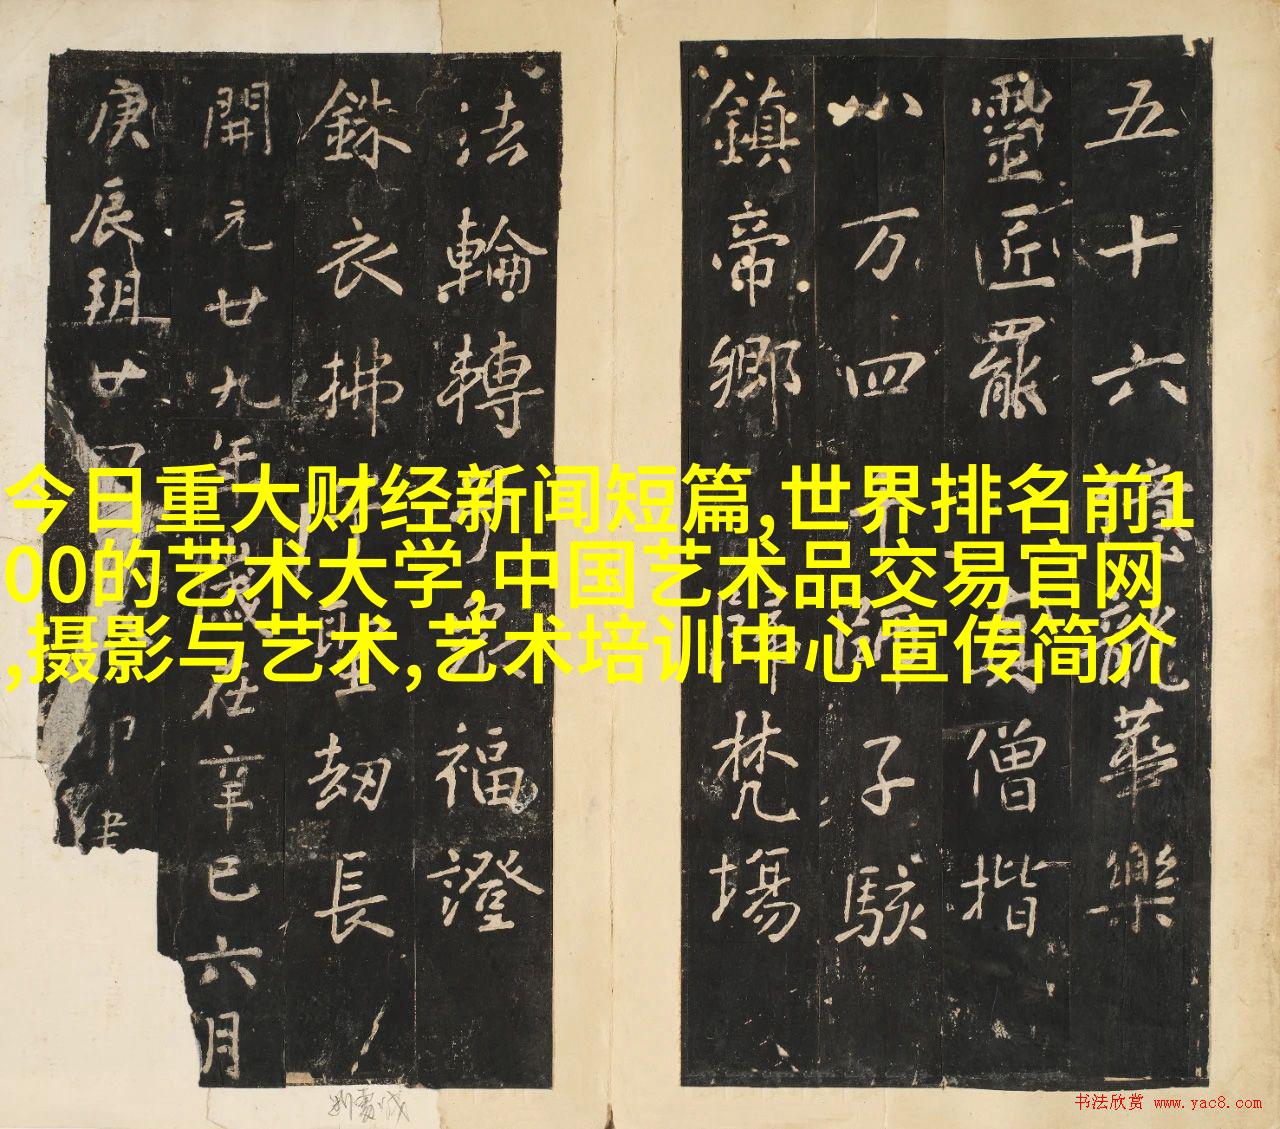 五十六億龍華樂
靈匠罷僧揩
八万四子駭
鎮帝鄉梵場
法輪轉福澄
銖衣拂劫長
開元廿九年歲在辛巳六月
庚辰朔廿卯建
今日重大财经新闻短篇,世界排名前1
00的艺术大学,中国艺术品交易官网
,摄影与艺术,艺术培训中心宣传简介
书法欣赏 www.yac8.com